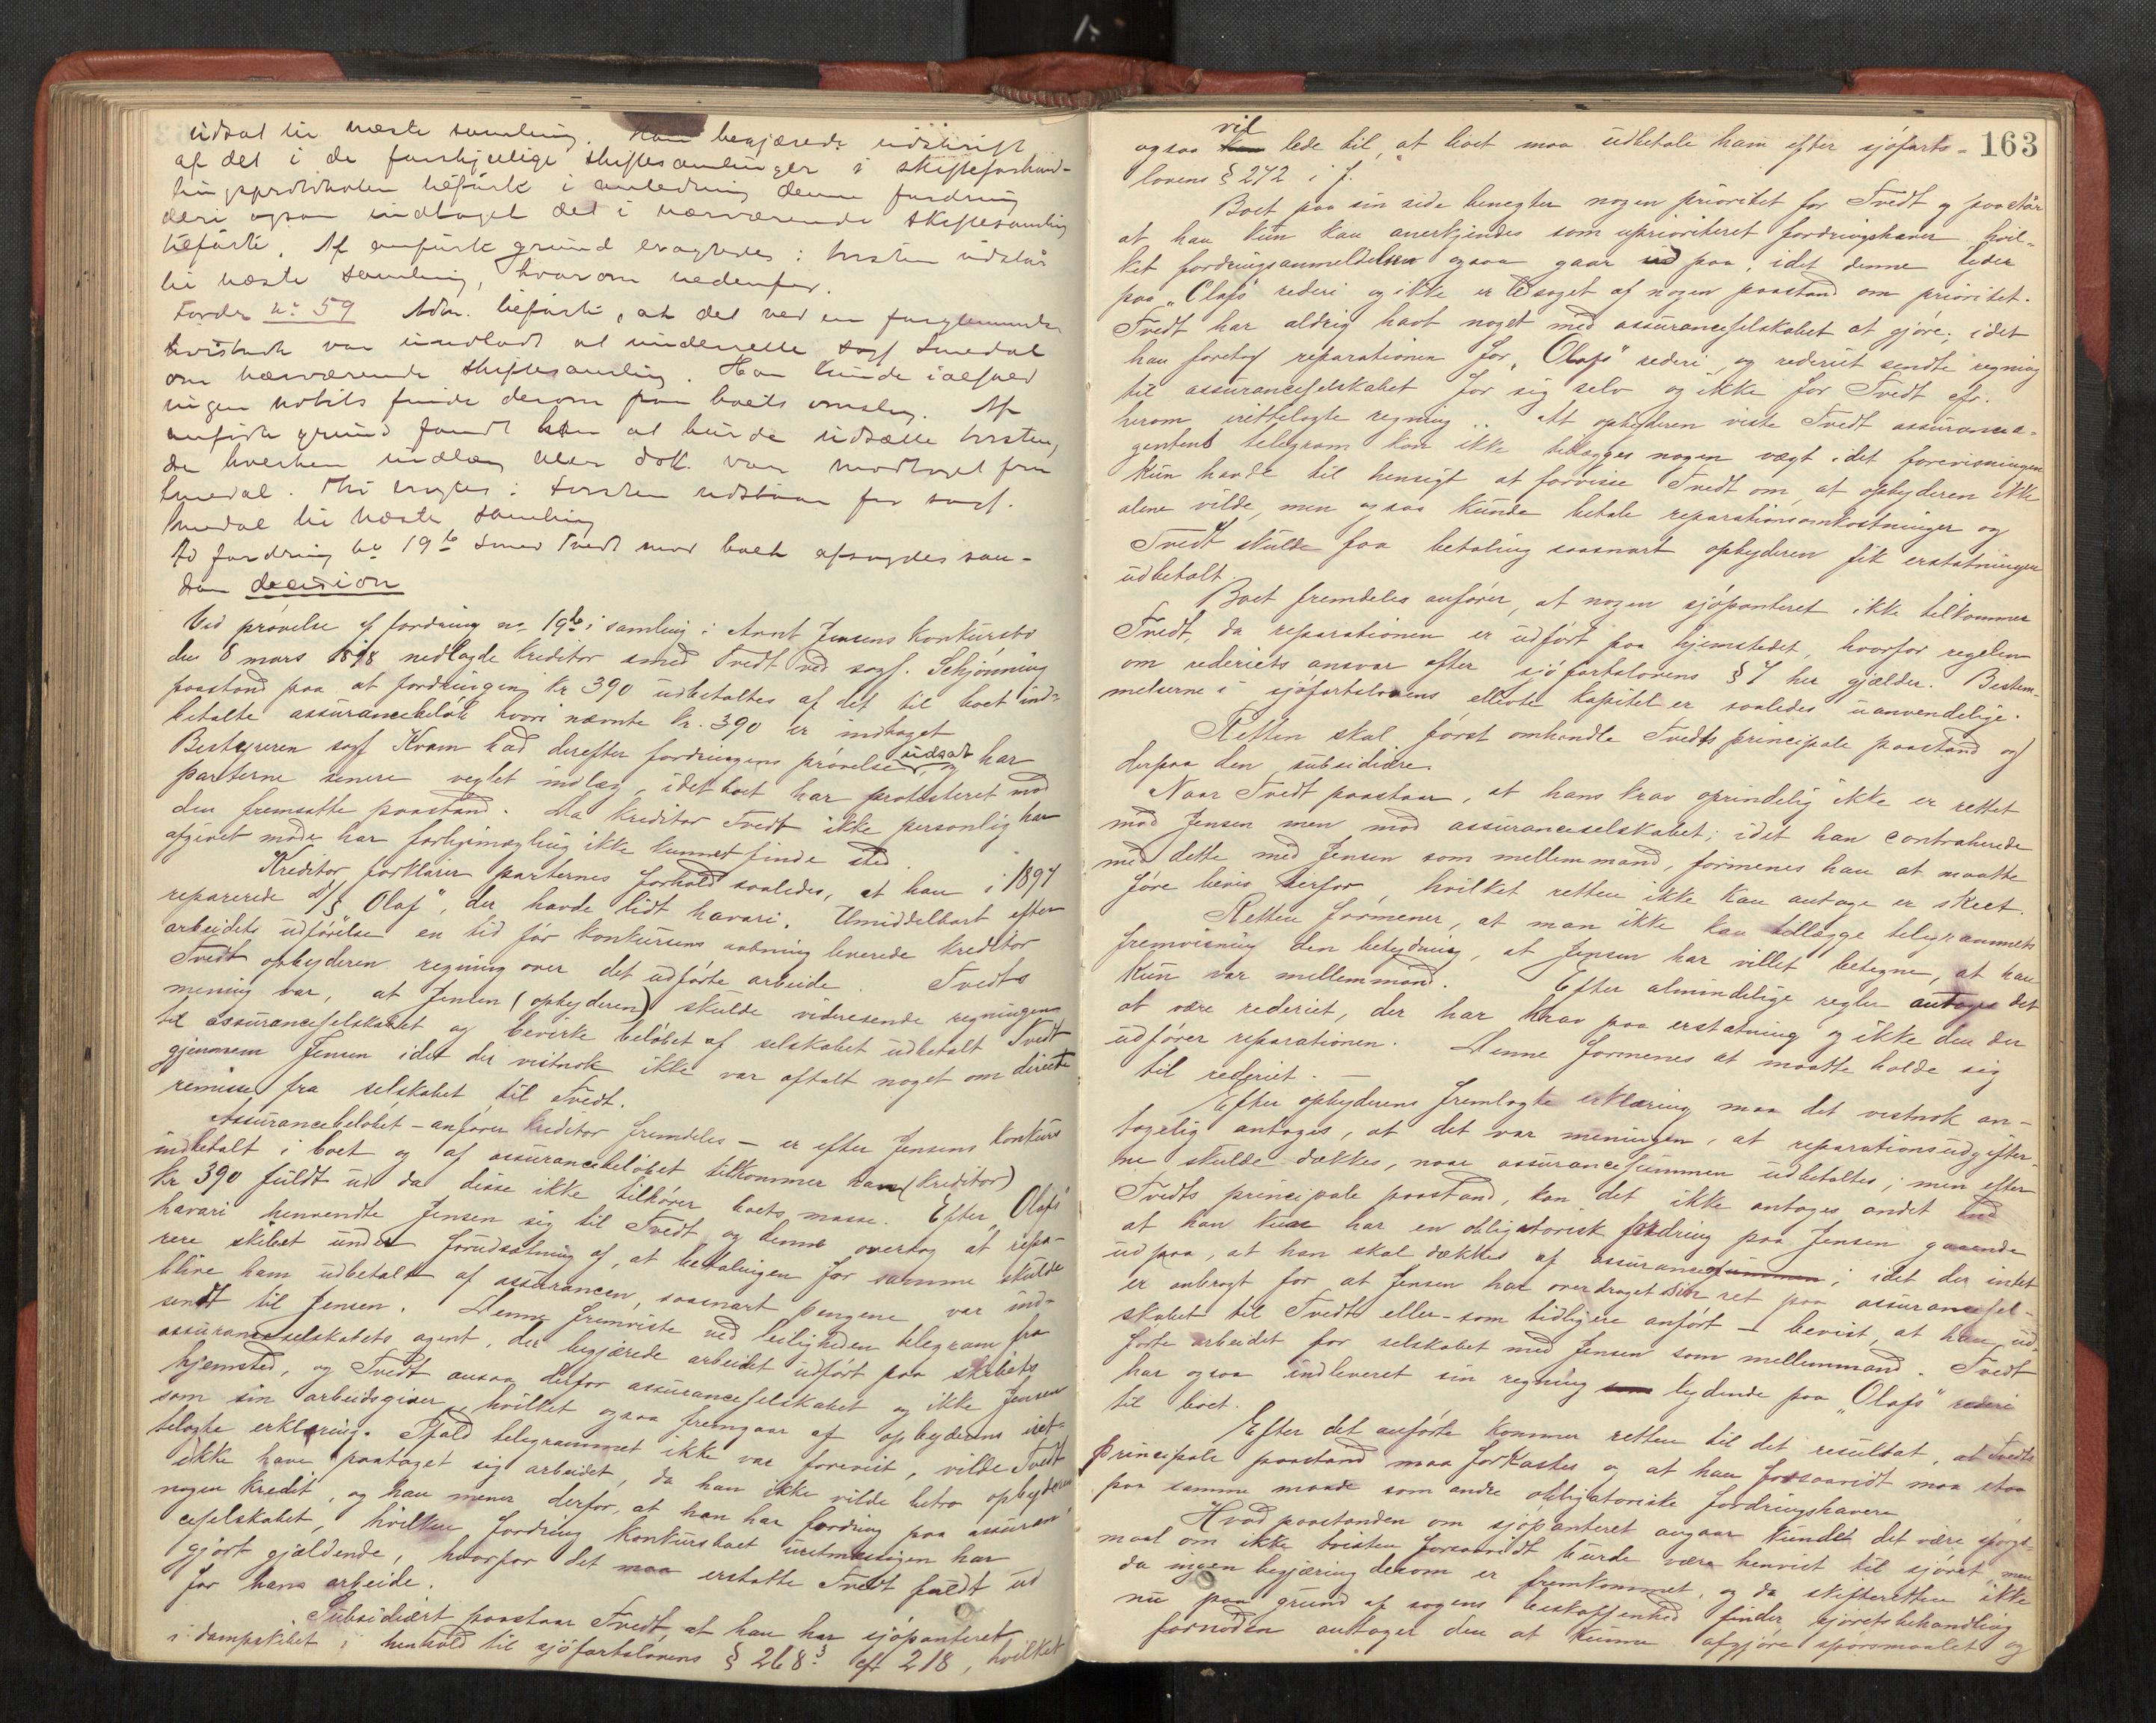 udsat til næste samling. Han begjærede udskrift
af det i de forskjellige skiftesamlinger i skifteforhand-
lingsprotokollen tilførte i anledning denne fordring
deri ogsaa indtaget det i nærværende skiftesamling
tilførte. Af anførte grund eragtedes: tvisten udstår
til næste samling, hvorom nedenfor.
Fordr. no 59 Adm. tilførte, at det ved en forglemmelse
var undladt at underrette sagf. Smedal
om nærværende skiftesamling. Han kunde ialfald
ingen notits finde derom paa boets omslag. Af
anførte grund fandt han at burde udsætte tvisten,
da hverken indlæg eller dok. var modtaget fra
Smedal. Thi eragtes: tvisten udstaar for sagf.
Smedal til næste samling
Ad fordring no 19b smed Tvedt mod boet afsagdes saa-
dan decision
Ved prøvelse af fordring no 19b i samling i Arnt Jensens konkursbo
den 8 mars 1898 nedlagde kreditor smed Tvedt ved sagf. Schjønning
paastand paa at fordringen kr 390 udbetaltes af det til boet ind-
betalte assurancebeløb hvori nævnte kr. 390 er indtaget
Bestyreren sagf Kvam bad derefter fordringens prøvelse udsat og har
parterne senere vexlet indlæg, idet boet har protesteret mod
den fremsatte paastand. Da kreditor Tvedt ikke personlig har
afgivet møde har forligsmægling ikke kunnet finde sted.
Kreditor forklarer parternes forhold saaledes, at han i 1897
reparerede d/s "Olaf", der havde lidt havari. Umiddelbart efter
arbeidets udførelse en tid før konkursens aabning leverede kreditor
Tvedt opbyderen regning over det udførte arbeide. Tvedts
mening var, at Jensen (opbyderen) skulde videresende regningen
til assuranceselskabet og bevirke beløbet af selskabet udbetalt Tvedt
gjennem Jensen idet der vistnok ikke var aftalt noget om direkte
remisse fra selskabet til Tvedt.
Assurancebeløbet - anfører kreditor fremdeles - er efter Jensens konkurs
indbetalt i boet og af assurancebeløbet tilkommer ham (kreditor)
kr 390 fuldt ud da disse ikke tilhører boets masse. Efter "Olafs"
havari henvendte Jensen sig til Tvedt og denne overtog at repa-
rere skibet under forudsætning af, at betalingen for samme skulde
blive ham udbetalt af assurancen, saasnart pengene var ind-
sendt til Jensen. Denne fremviste ved leiligheden telegram fra
assuranceselskabets agent, der begjærede arbeidet udført paa skibets
hjemsted, og Tvedt ansaa derfor assuranceselskabet og ikke Jensen
som sin arbeidsgiver, hvilket ogsaa fremgaar af opbyderens iret-
telagte erklæring. Ifald telegrammet ikke var forevist, vilde Tvedt
ikke have paataget sig arbeidet, da han ikke vilde betro opbyderen
nogen kredit, og han mener derfor, at han har fordring paa assuran-
ceselskabet, hvilken fordring konkursboet uretmæssigen har
gjort gjældende, hvorfor det maa erstatte Tvedt fuldt ud
for hans arbeide.
Subsidiært paastaar Tvedt, at han har sjøpanteret
i dampskibet i henhold til sjøfartslovens § 268 3 cfr 218, hvilket
163
ogsaa vil lede til, at boet maa udbetale ham efter sjøfarts-
lovens § 272 i f.
Boet paa sin side benegter nogen prioritet for Tvedt og paastår
at han kun kan anerkjendes som uprioriteret fordringshaver hvil-
ket fordringsanmeldelsen ogsaa gaar ud paa, idet denne lyder
paa "Olafs" rederi og ikke er ledsaget af nogen paastand om prioritet.
Tvedt har aldrig havt noget med assuranceselskabet at gjøre; idet
han foretog reparationen for "Olafs" rederi og rederiet sendte regning
til assuranceselskabet for sig selv og ikke for Tvedt cfr.
herom irettelagte regning. At opbyderen viste Tvedt assurance-
gentens telegram kan ikke tillægges nogen vægt idet forevisningen
kun havde til hensigt at forvisse Tvedt om, at opbyderen ikke
alene vilde, men ogsaa kunde betale reparationsomkostninger og
Tvedt skulde faa betaling saasnart opbyderen fik erstatningen
udbetalt.
Boet fremdeles anfører, at nogen sjøpanteret ikke tilkommer
Tvedt, da reparationen er udført paa hjemstedet, hvorfor regelen
om rederiets ansvar efter sjøfartslovens § 7 her gjælder. Bestem-
melserne i sjøfartslovens ellevte kapitel er saaledes uanvendelige.
Retten skal først omhandle Tvedts principale paastand og
derpaa den subsidiære.
Naar Tvedt paastaar, at hans krav oprindelig ikke er rettet
mod Jensen men mod assuranceselskabet; idet han contraherede
med dette med Jensen som mellemmand, formenes han at maatte
føre bevis derfor, hvilket retten ikke kan antage er skeet.
Retten formener, at man ikke kan tillægge telegrammets
fremvisning den betydning, at Jensen har villet betegne, at han
kun var mellemmand. Efter almindelige regler antages det
at være rederiet, der har krav paa erstatning og ikke den der
udfører reparationen. Denne formenes at maatte holde sig
til rederiet. —
Efter opbyderens fremlagte erklæring maa det vistnok an-
tagelig antages, at det var meningen, at reparationsudgifter-
ne skulde dækkes, naar assurancesummen udbetaltes; men efter
Tvedts principale paastand, kan det ikke antages andet end
at han kun har en obligatorisk fordring paa Jensen gaaende
ud paa, at han skal dækkes af assurancesummen; idet der intet
er anbragt for at Jensen har overdraget sin ret paa assurancesel-
skabet til Tvedt eller - som tidligere anført - bevist, at han ud-
førte arbeidet for selskabet med Jensen som mellemmand. Tvedt
har ogsaa indleveret sin regning som lydende paa "Olafs" rederi
til boet.
Efter det anførte kommer retten til det resultat, at Tvedts
principale paastand maa forkastes og at han forsaavidt maa staa
paa samme maade som andre obligatoriske fordringshavere
Hvad paastanden om sjøpanteret angaar kunde det være spørgs-
maal om ikke tvisten forsaavidt burde være henvist til sjøret, men
da ingen begjæring derom er fremkommet, og da skifteretten ikke
nu paa grund af sagens beskaffenhed finder sjøretsbehandling
fornøden antager den at kunne afgjøre spørsmaalet og